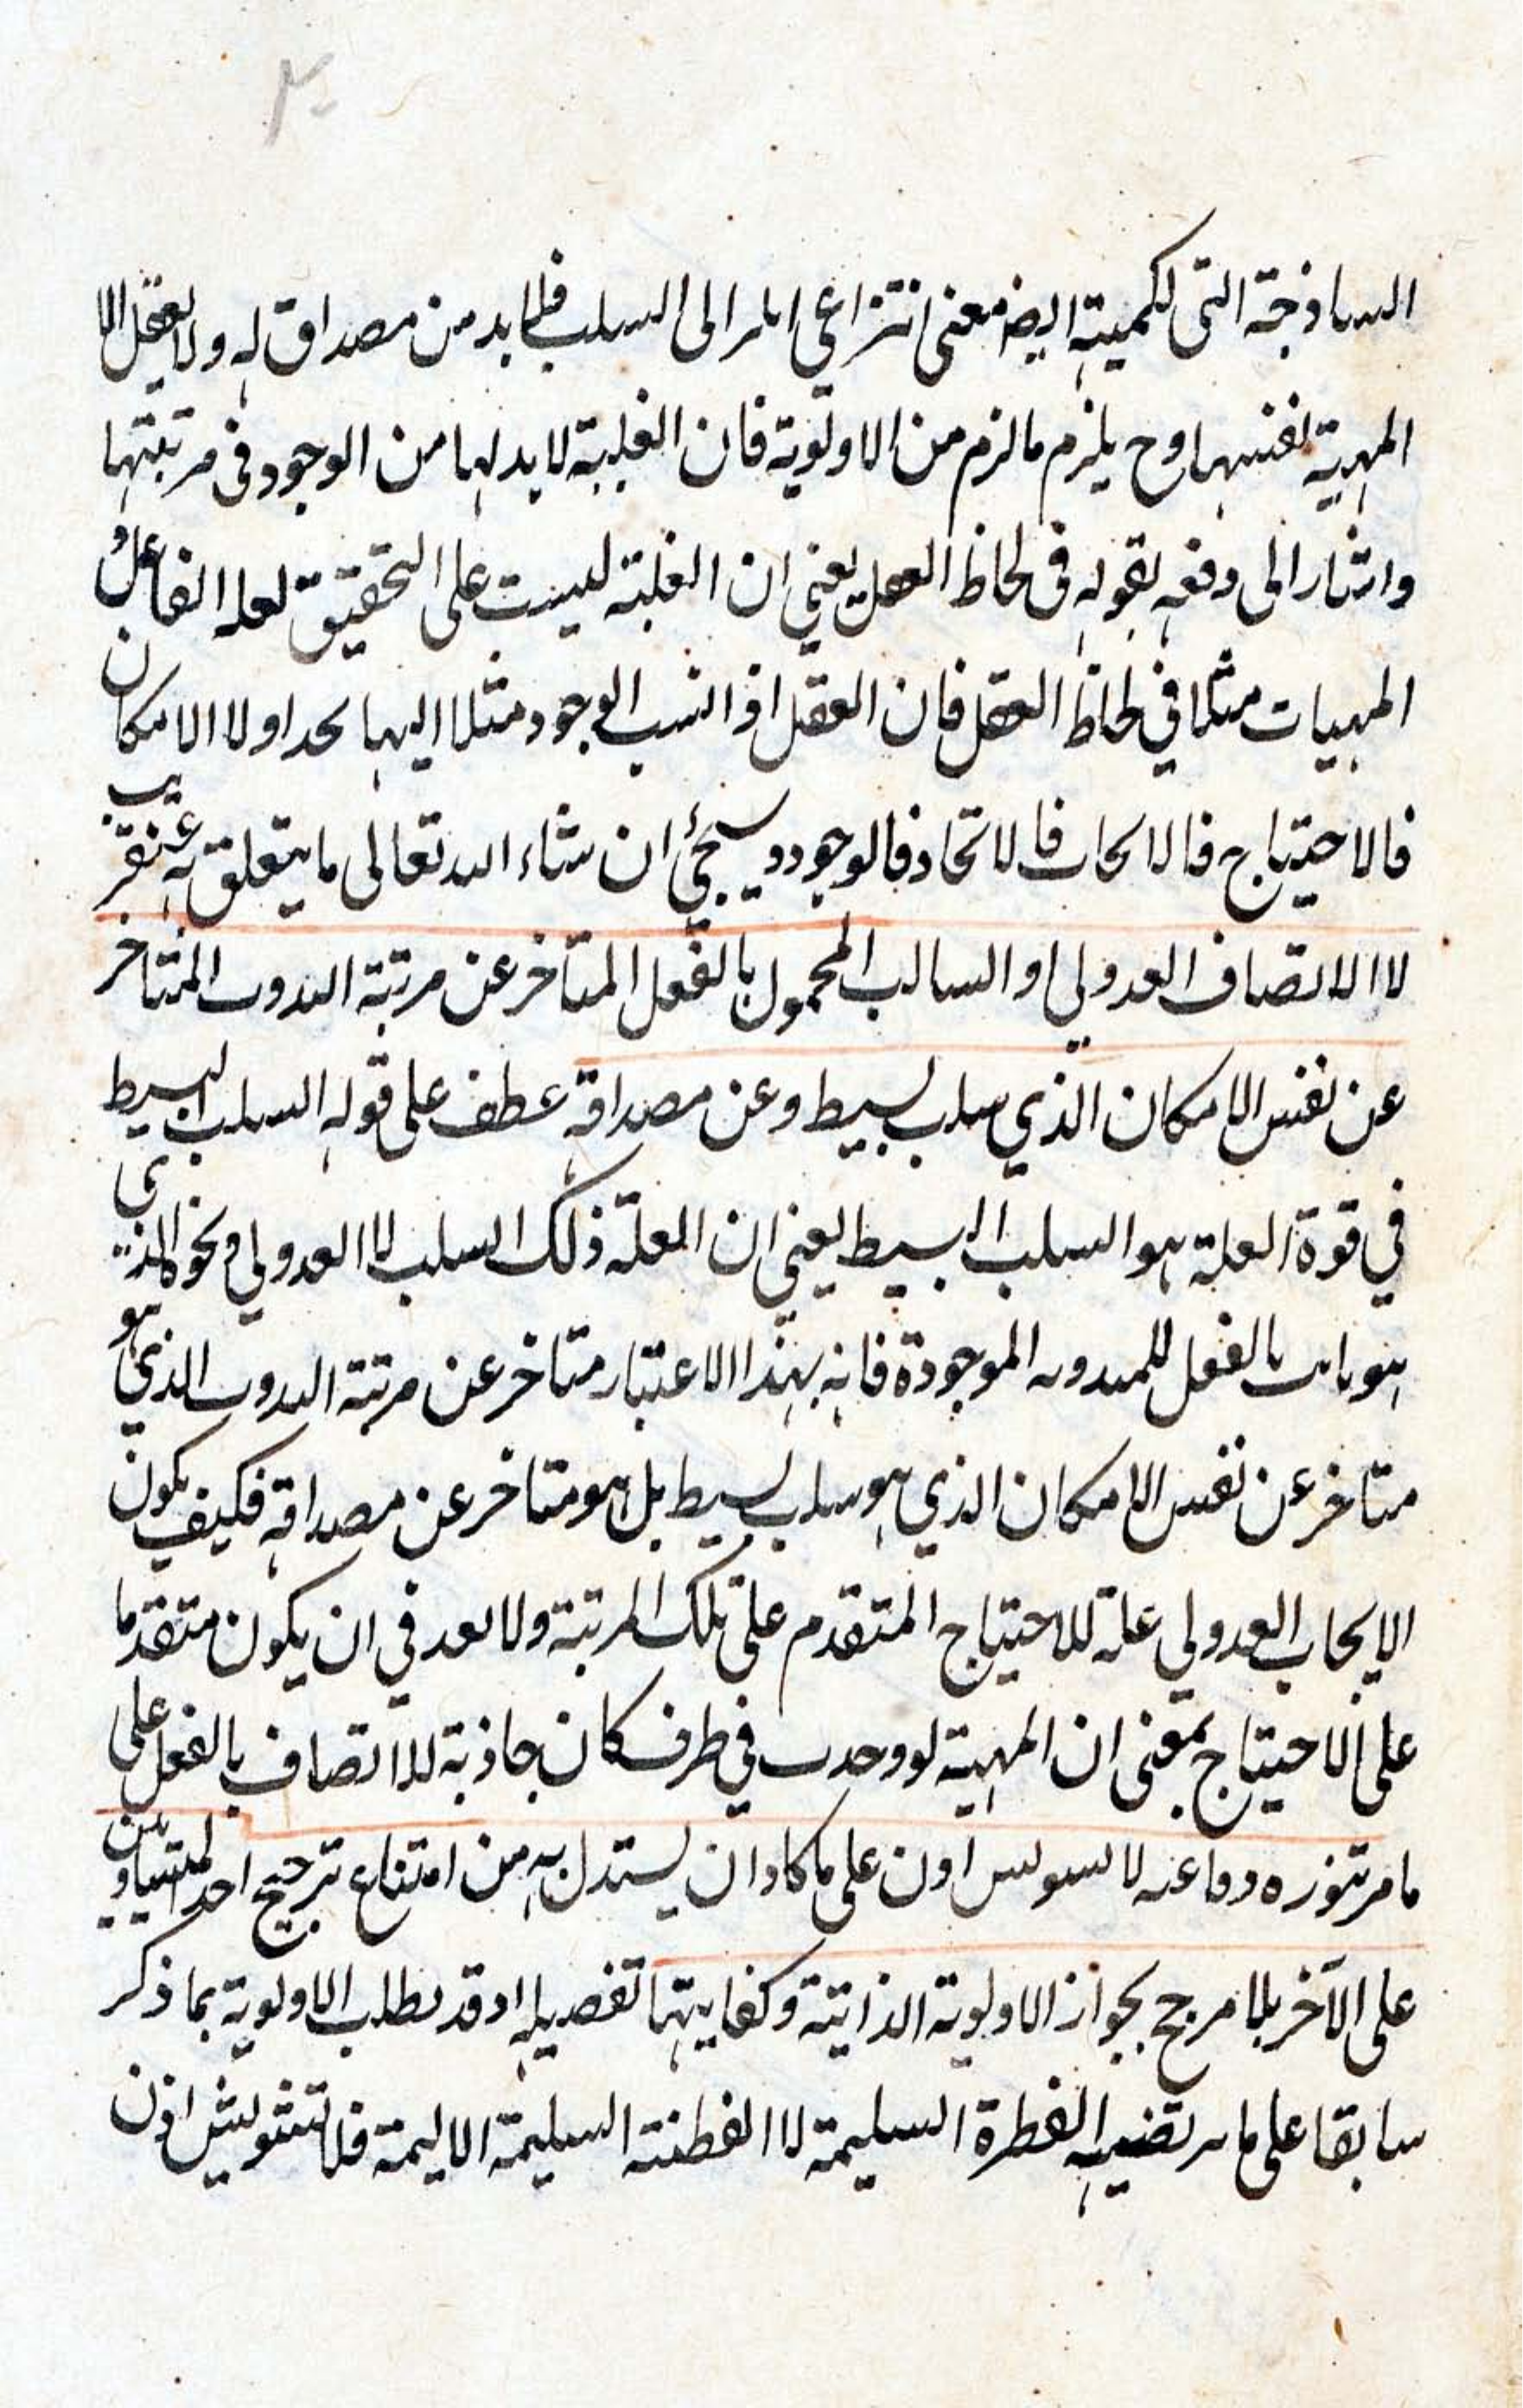 الساذجة التى لكمية ايضا معنى انتزاعي السلب فلا بد من مصداق له ولا يعقل الا
المهية نفسها وح يلزم ما لزم من الاولوية فان العلية لا بد لها من الوجود فى مرتبتها
واشار الى دفعه بقوله فى لحاظ العقل يعني ان العلية ليست على التحقيق لعله الفاعل و
المهيات مثلا في لحاظ العقل فان العقل اذا انسب الوجود مثلا اليها يجد اولا الامكان
فالاحتياج فالايجاب فالاتحاد فالوجود وسيجئ ان شاء الله تعالى ما يتعلق به عنقريب
لا الاتصاف العدولي او السالب المحمول بالفعل المتاخر عن مرتبة الثبوت المتاخر
عن نفس الامكان الذي سلب بسيط وعن مصداقه عطف على قوله السلب البسيط
في قوة العلة هو السلب البسيط يعني ان العلة ذلك السلب لا العدولي ونحوه الذي
هو بالفعل للمهية الموجودة فانه بهذا الاعتبار متاخر عن مرتبة الثبوت الذي هو
متاخر عن نفس الامكان الذي هو سلب بسيط بل هو متاخر عن مصداقه فكيف يكون
الايجاب العدولي علة للاحتياج المتقدم على تلك المرتبة ولا بعد في ان يكون متقدما
على الاحتياج بمعنى ان المهية لو وجدت في طرف كان جاذبة للاتصاف بالفعل على
ما مر تنوره دفاعه لا اذن على ما كاد ان يستدل به من امتناع ترجيح احد المتساويين
على الآخر بلا مرجح بجواز الاولوية الذاتية وكفايتها تفصيله اذ قد بطلب الاولوية بما ذكر
سابقا على ما يرتضيه الفطرة السليمة لا الفطنة السليمة الاليمة فلا تشويش اذن